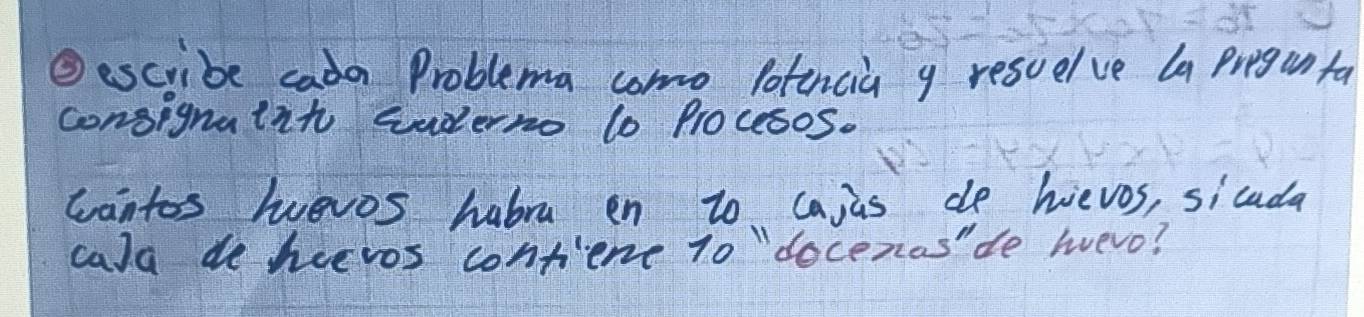 ③ escribe cada Problema como Potencia y resuelve la Pregunta
consigna en tu cuaderno lo Procesos.
cuántos huevos habra en 10 cajas de huevos, si cada
caja de huevos contiene 10 "docenas" de huevo?